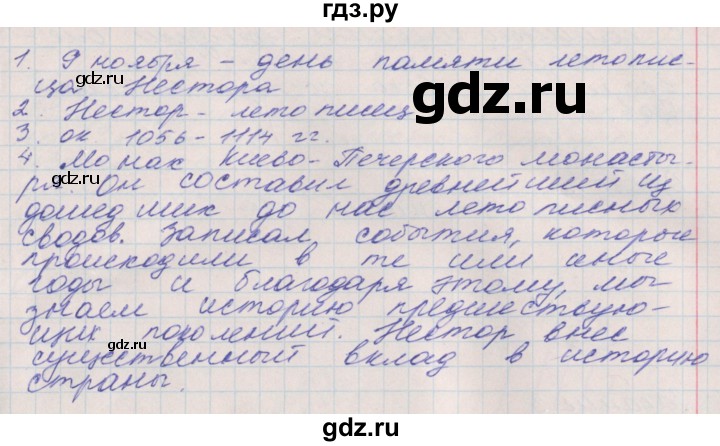 гдз.ру
1. 9 ноября - день памяти летопис-
ца Нестора
2. Нестор - летописец
3. ок 1056 - 1114 гг.
4. Монах Киево-Печерского монасты-
ря. Он составил древнейший из
дошедших до нас летописных
сводов. Записал события, которые
происходили в те или иные
годы и благодаря этому, мы
знаем историю предшествую-
щих поколений. Нестор внес
существенный вклад в историю
страны.
gdz.ru
gdz.ru
gdz.ru
gdz.ru
gdz.ru
gdz.ru
gdz.ru
gdz.ru
gdz.ru